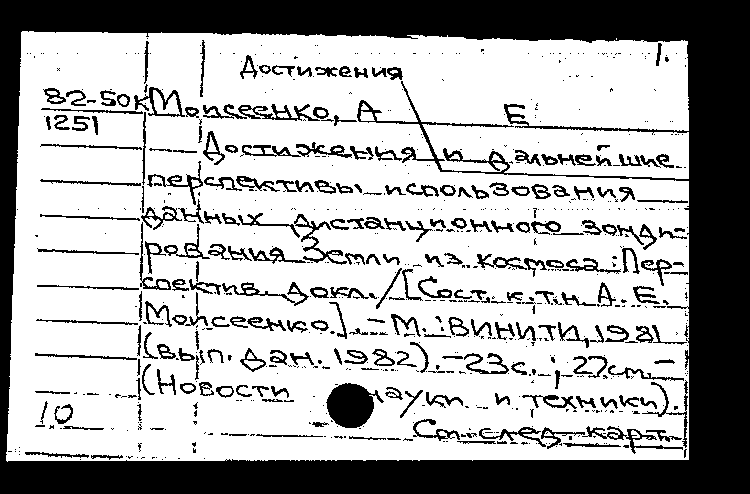 1.
Достижения
82-50к Моисеенко, А Е
1251
Достижения и дальнейшие
перспективы использования
данных дистанционного зонди-
рования Земли из космоса: Пер-
спектив. докл./[Сост. к.т.н. А. Е.
Моисеенко]. – М.: ВИНИТИ, 1981
(вып. дан. 1982). – 23с.; 27см. –
(Новости науки и техники).
10
См. след. карт.